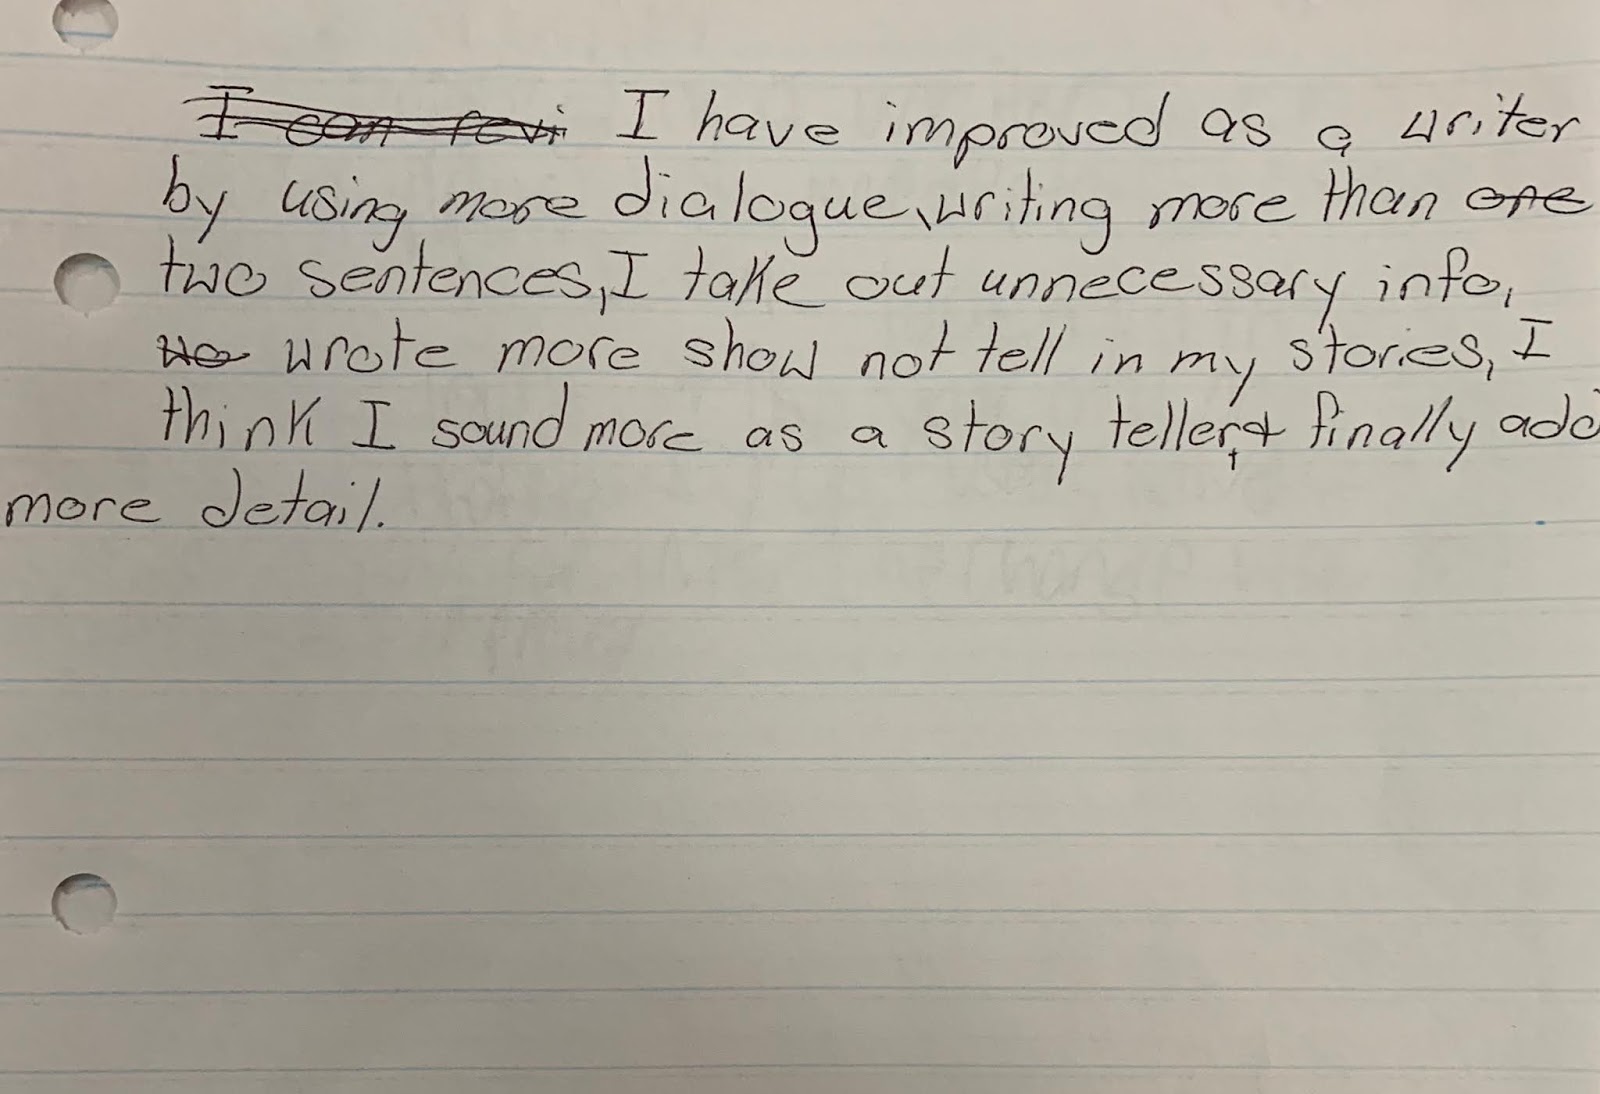 I can revi I have improved as a writer
by using more dialogue, writing more than one
two sentences, I take out unnecessary info,
wo wrote more show not tell in my stories, I
think I sound more as a story teller, & finally add
more detail.